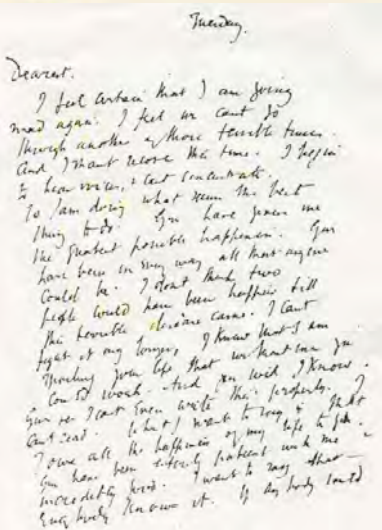 Tuesday.
Dearest.
I feel certain that I am going
mad again. I feel we cant go
through another of those terrible times.
And I shant recover this time. I begin
to hear voices, & cant concentrate.
So I am doing what seems the best
thing to do. You have given me
the greatest possible happiness. You
have been in every way all that anyone
could be. I dont think two
people could have been happier till
this terrible disease came. I cant
fight it any longer, I know that I am
spoiling your life, that without me you
could work. And you will I know.
You see I cant even write this properly. I
cant read. What I want to say is that
I owe all the happiness of my life to you.
You have been entirely patient with me &
incredibly good. I want to say that –
everybody knows it. If anybody could